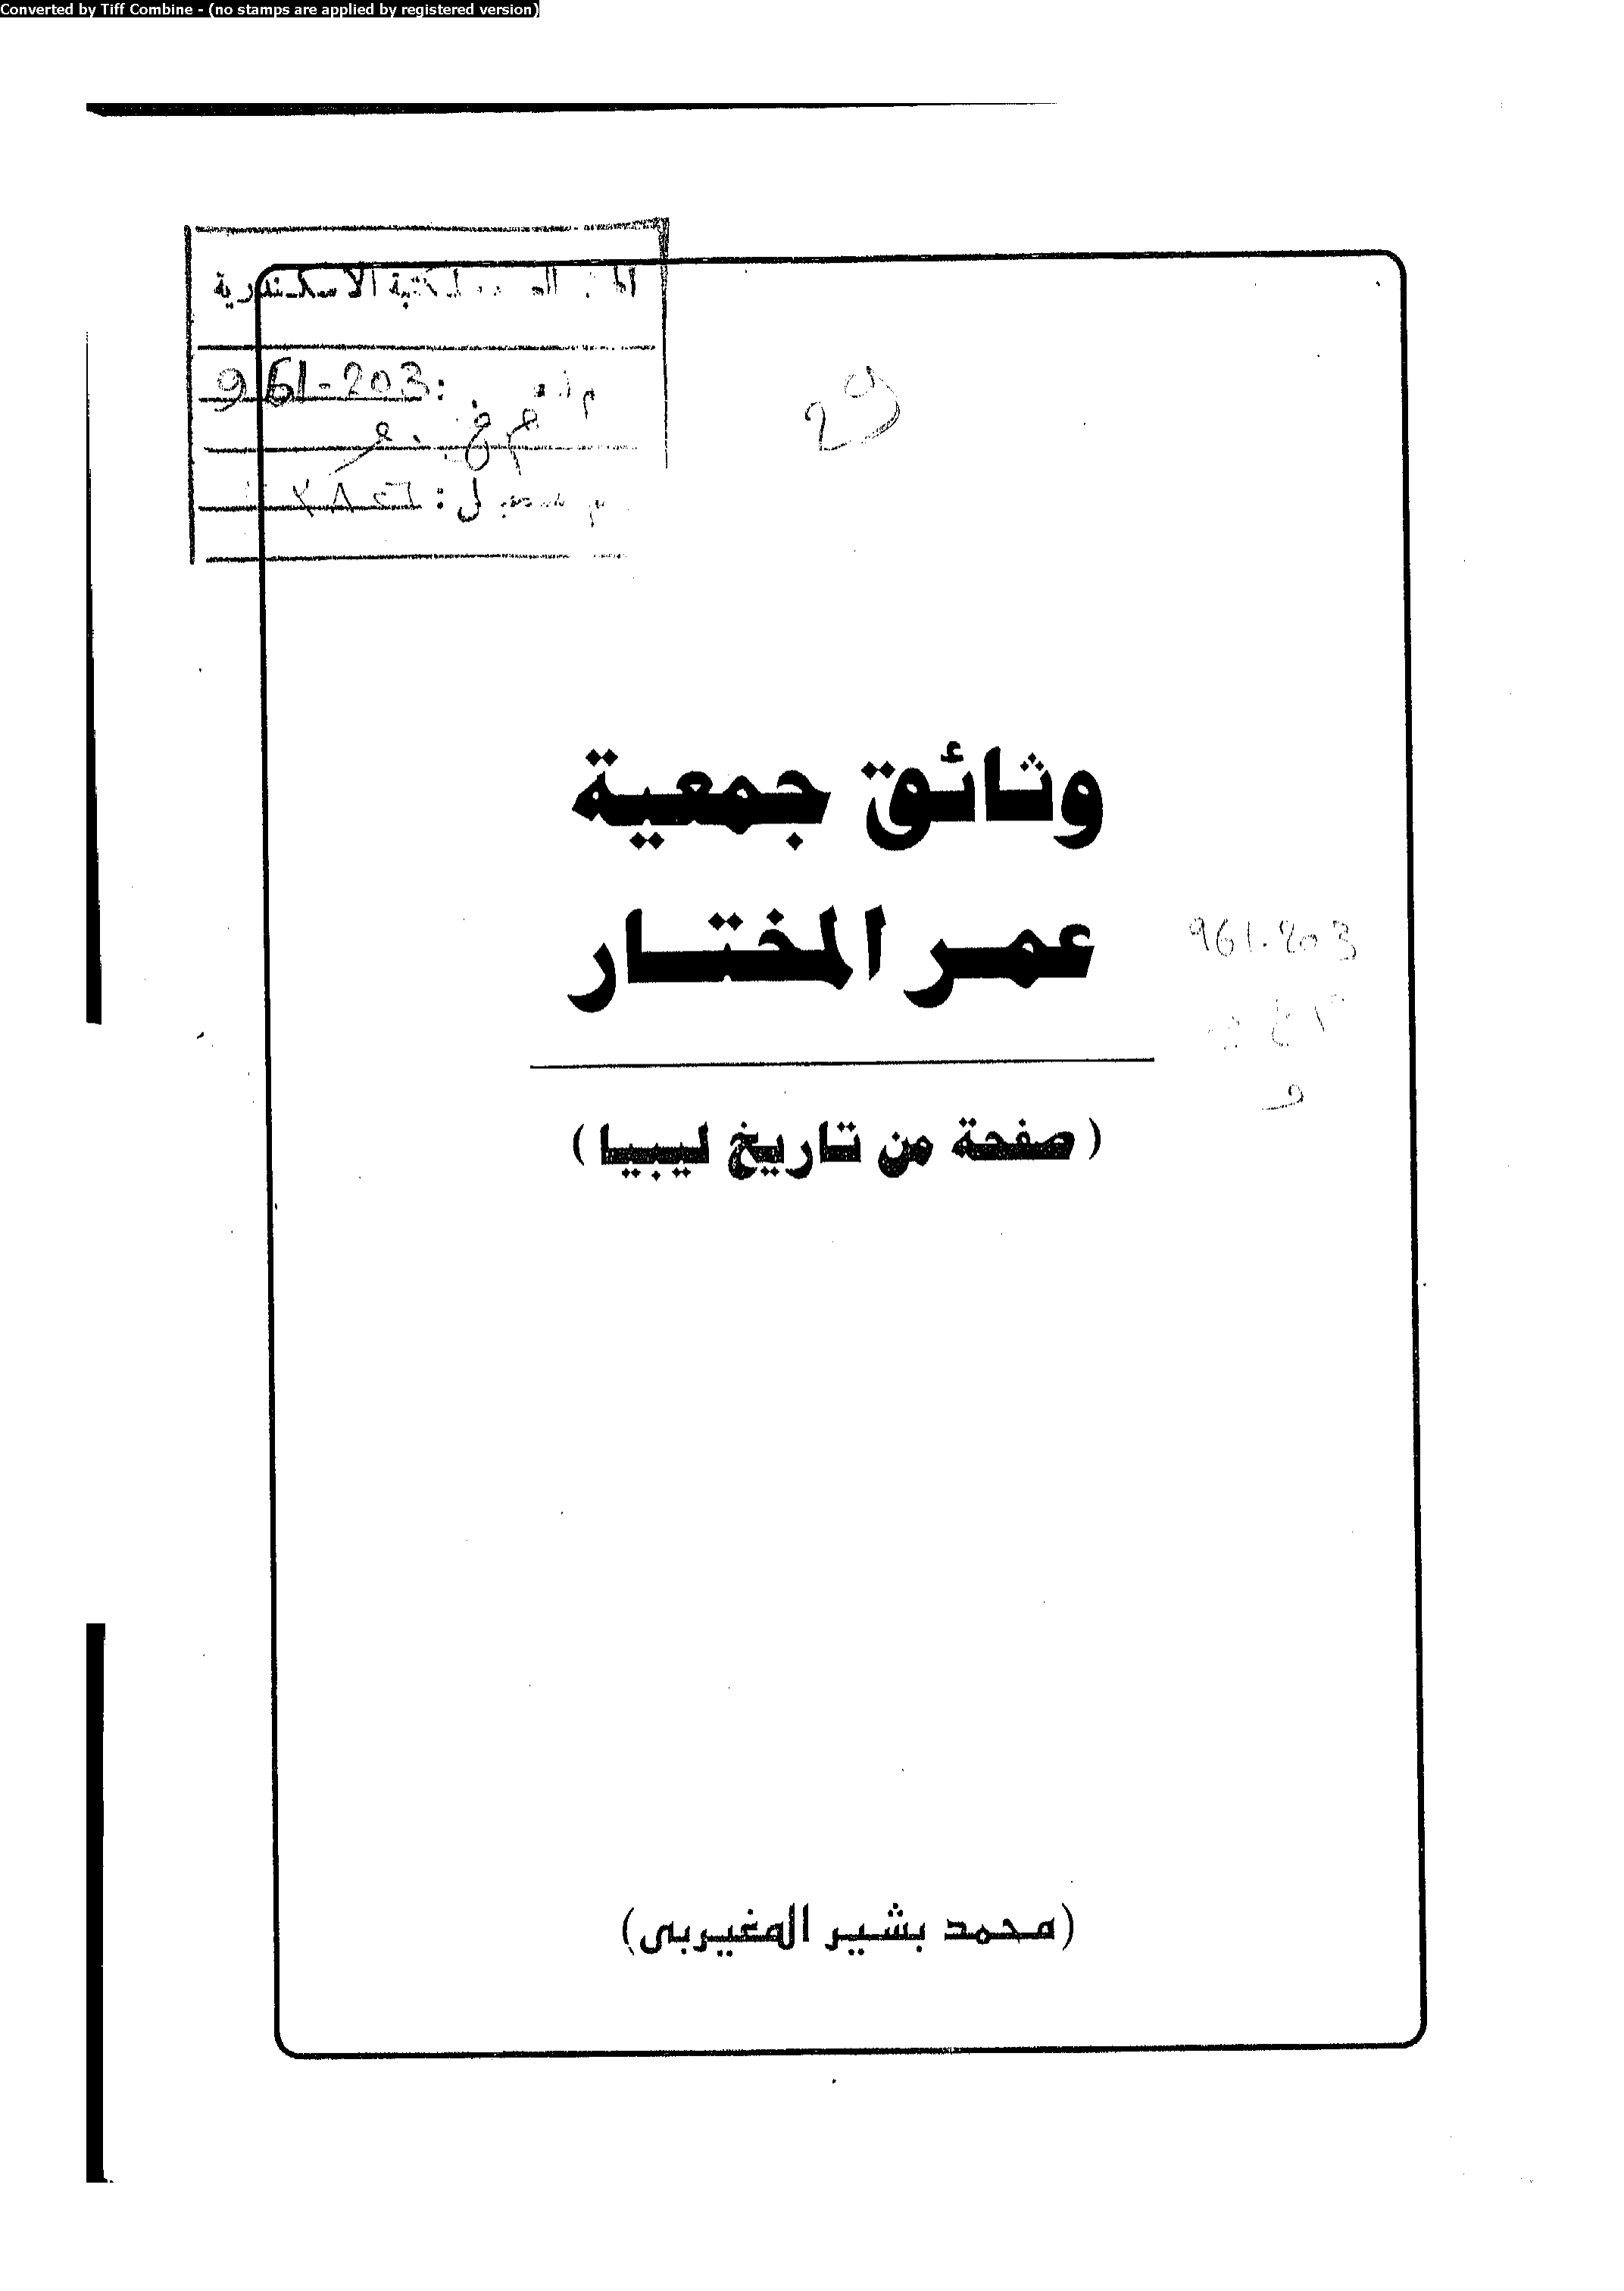 Converted by Tiff Combine - (no stamps are applied by registered version)
لمكتبة الاسكندرية
961-203:
29
وثائق جمعية
عمر المختار
961.203
(صفحة من تاريخ ليبيا)
(محمد بشير المغيربى)